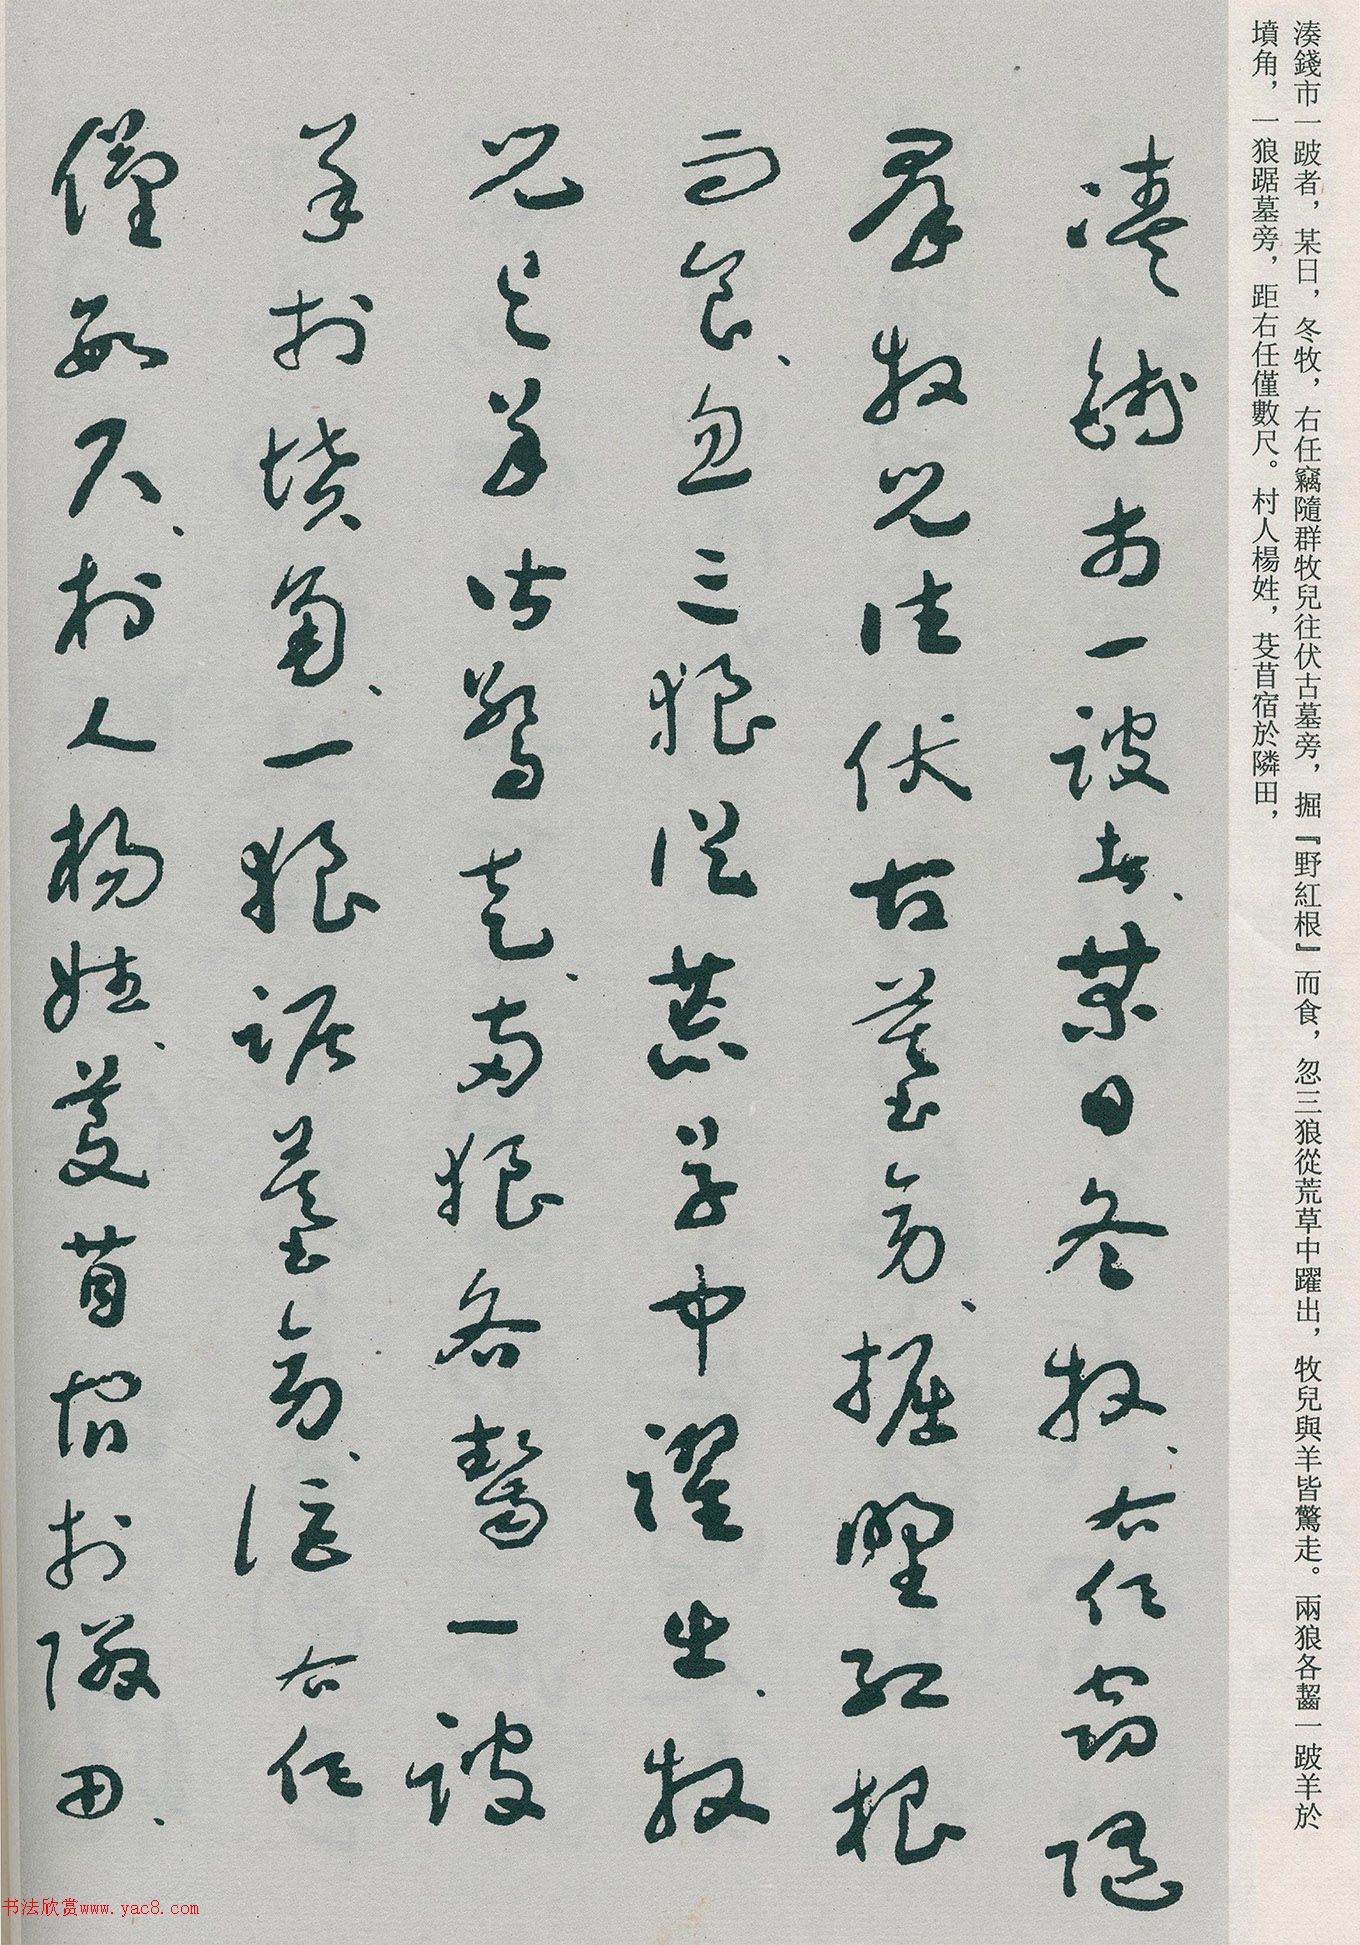 湊錢市一跛者，某日，冬牧，右任竊隨群牧兒往伏古墓旁，掘『野紅根』而食，忽三狼從荒草中躍出，牧兒與羊皆驚走。兩狼各齧一跛羊於
墳角，一狼踞墓旁，距右任僅數尺。村人楊姓，芟苜宿於隣田，
湊錢市一跛者、某日冬牧、右任竊隨
群牧兒往伏古墓旁、掘野紅根
而食、忽三狼從荒草中躍出、牧
兒與羊皆驚走、兩狼各齧一跛
羊於墳角、一狼踞墓旁、距右任
僅數尺、村人楊姓、芟苜宿於隣田、
书法欣赏www.yac8.com